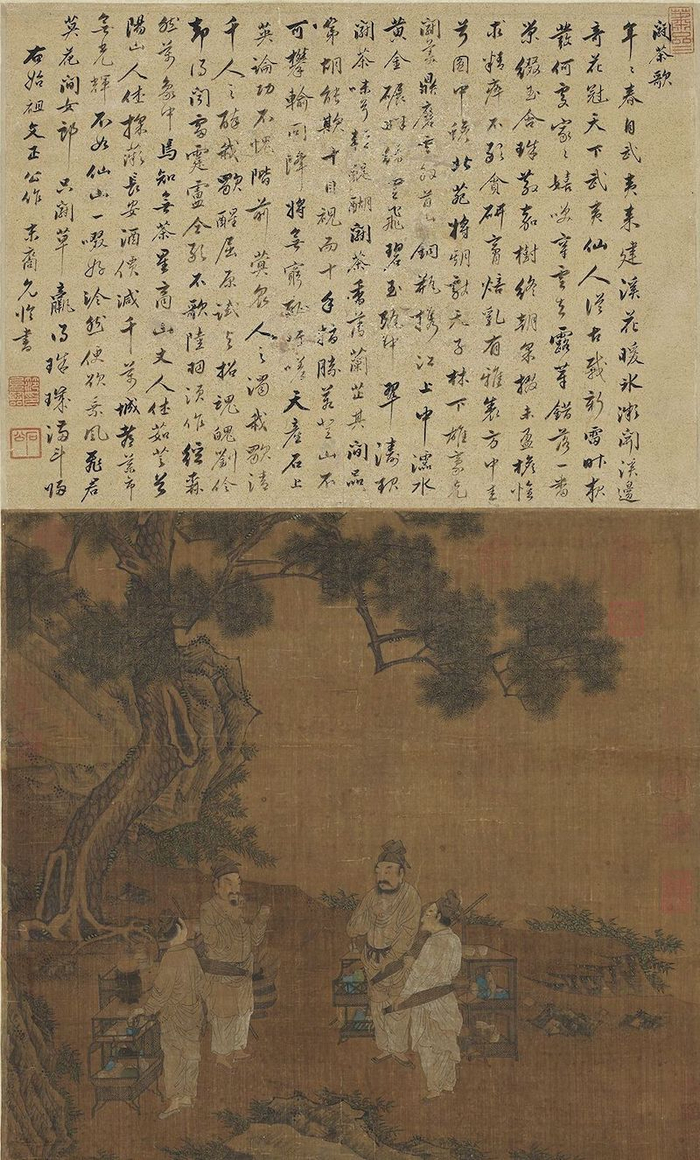 鬪茶歌
年〻春自武夷来建溪花暖冰漸開溪邊
奇花冠天下武夷仙人從古栽新雷昨夜
發何處家〻嬉笑穿雲去露芽錯落一番
榮綴玉含珠散嘉樹終朝采掇未盈襜惟
求精粹不敢貪研膏焙乳有雅製方中圭
兮圓中蟾北苑將期獻天子林下雄豪先
鬪美鼎磨雲外首山銅瓶携江上中濡水
黄金碾畔綠塵飛碧玉甌中翠濤起
鬪茶味兮輕醍醐鬪茶香兮薄蘭芷其間品
第胡能欺十目視而十手指勝若登山不
可攀輸同降將無窮恥吁嗟天產石上
英論功不愧階前蓂衆人之濁我歌清
千人之醉我歌醒屈原試与招魂魄劉伶
却得聞雷霆盧仝敢不歌陸羽須作經森
然萬象中焉知無茶星商山丈人休茹芝首
陽山人休採薇長安酒價減千萬城都藥市
無光輝不如仙山一啜好泠然便欲乘風飛君
莫花間女郎只鬪草贏得珠璣滿斗歸
右始祖文正公作 末裔允臨書